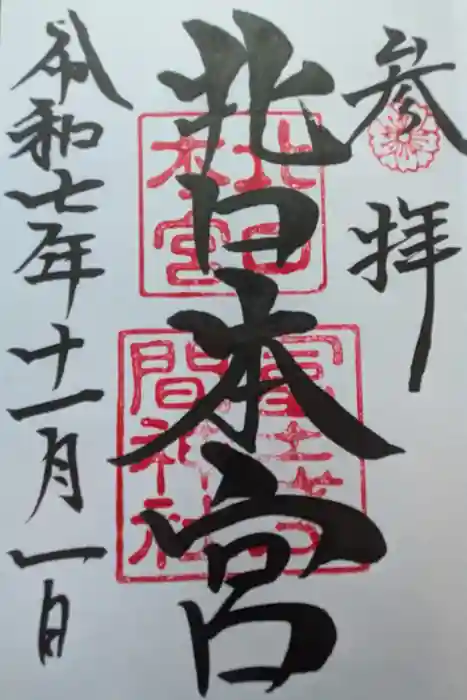 参拝
北口本宮
令和七年十一月一日
北口
本宮
冨士
間神社